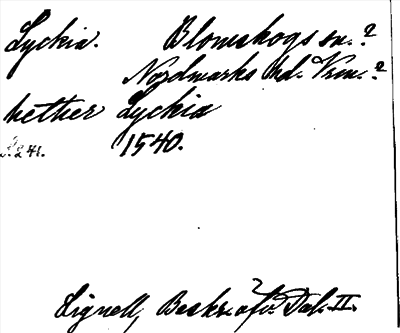 Lyckia. Blomskogs sn.?
Nordmarks hd. Vrm.?
nether Lyckia
1540.
Lignell, Beskr. öfv. Dal. II.